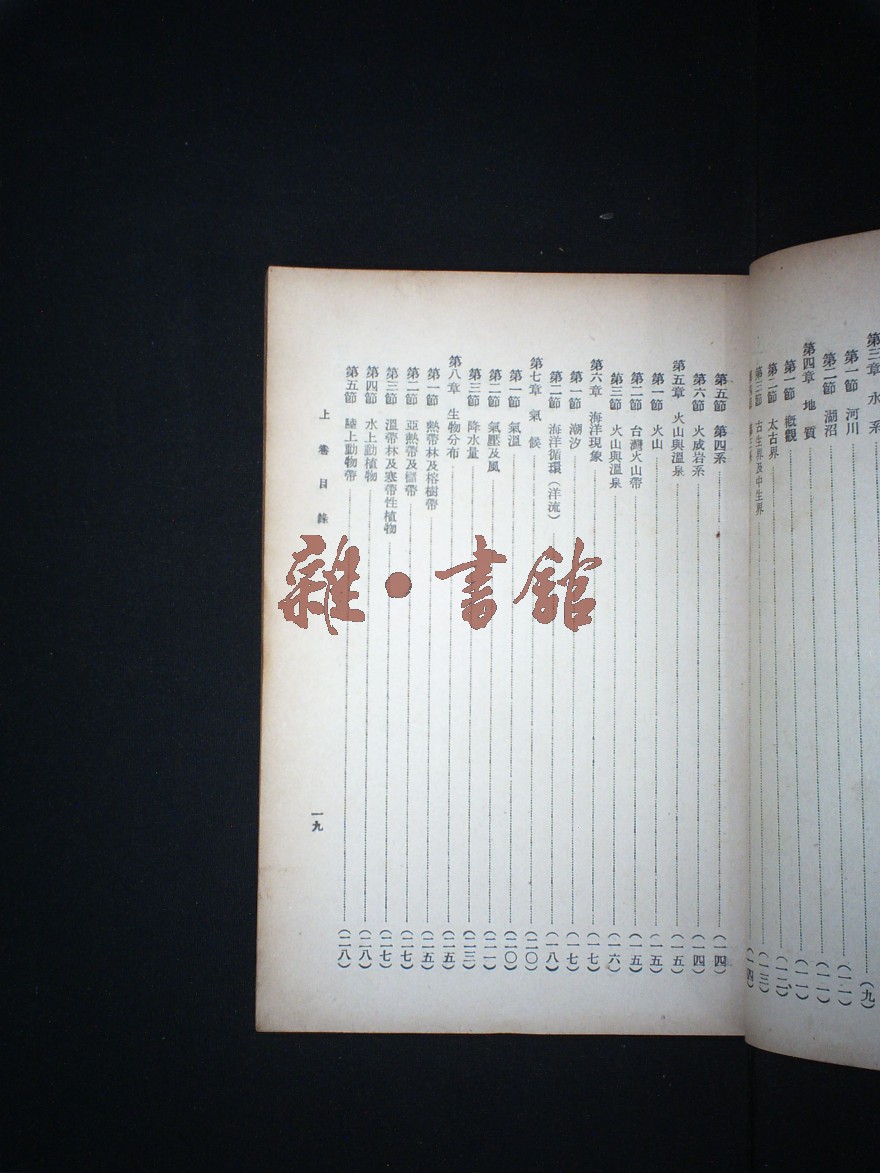 第三章 水系（九）
第一節 河川（一一）
第二節 湖沼（一一）
第四章 地質（一一）
第一節 概觀
第二節 太古界
第三節 古生界及中生界（一三）
第四節 第三系（一四）
第五節 第四系（一四）
第六節 火成岩系（一四）
第五章 火山與溫泉（一五）
第一節 火山（一五）
第二節 台灣火山帶（一五）
第三節 火山與溫泉（一六）
第六章 海洋現象（一七）
第一節 潮汐（一七）
第二節 海洋循環（洋流）（一八）
第七章 氣候（二〇）
第一節 氣溫（二〇）
第二節 氣壓及風（二一）
第三節 降水量（二三）
第八章 生物分布（二五）
第一節 熱帶林及榕樹帶（二五）
第二節 亞熱帶及櫧帶（二七）
第三節 溫帶林及寒帶性植物（二七）
第四節 水上動植物（二八）
第五節 陸上動物帶（二八）
上卷目錄
一九
雜•書館